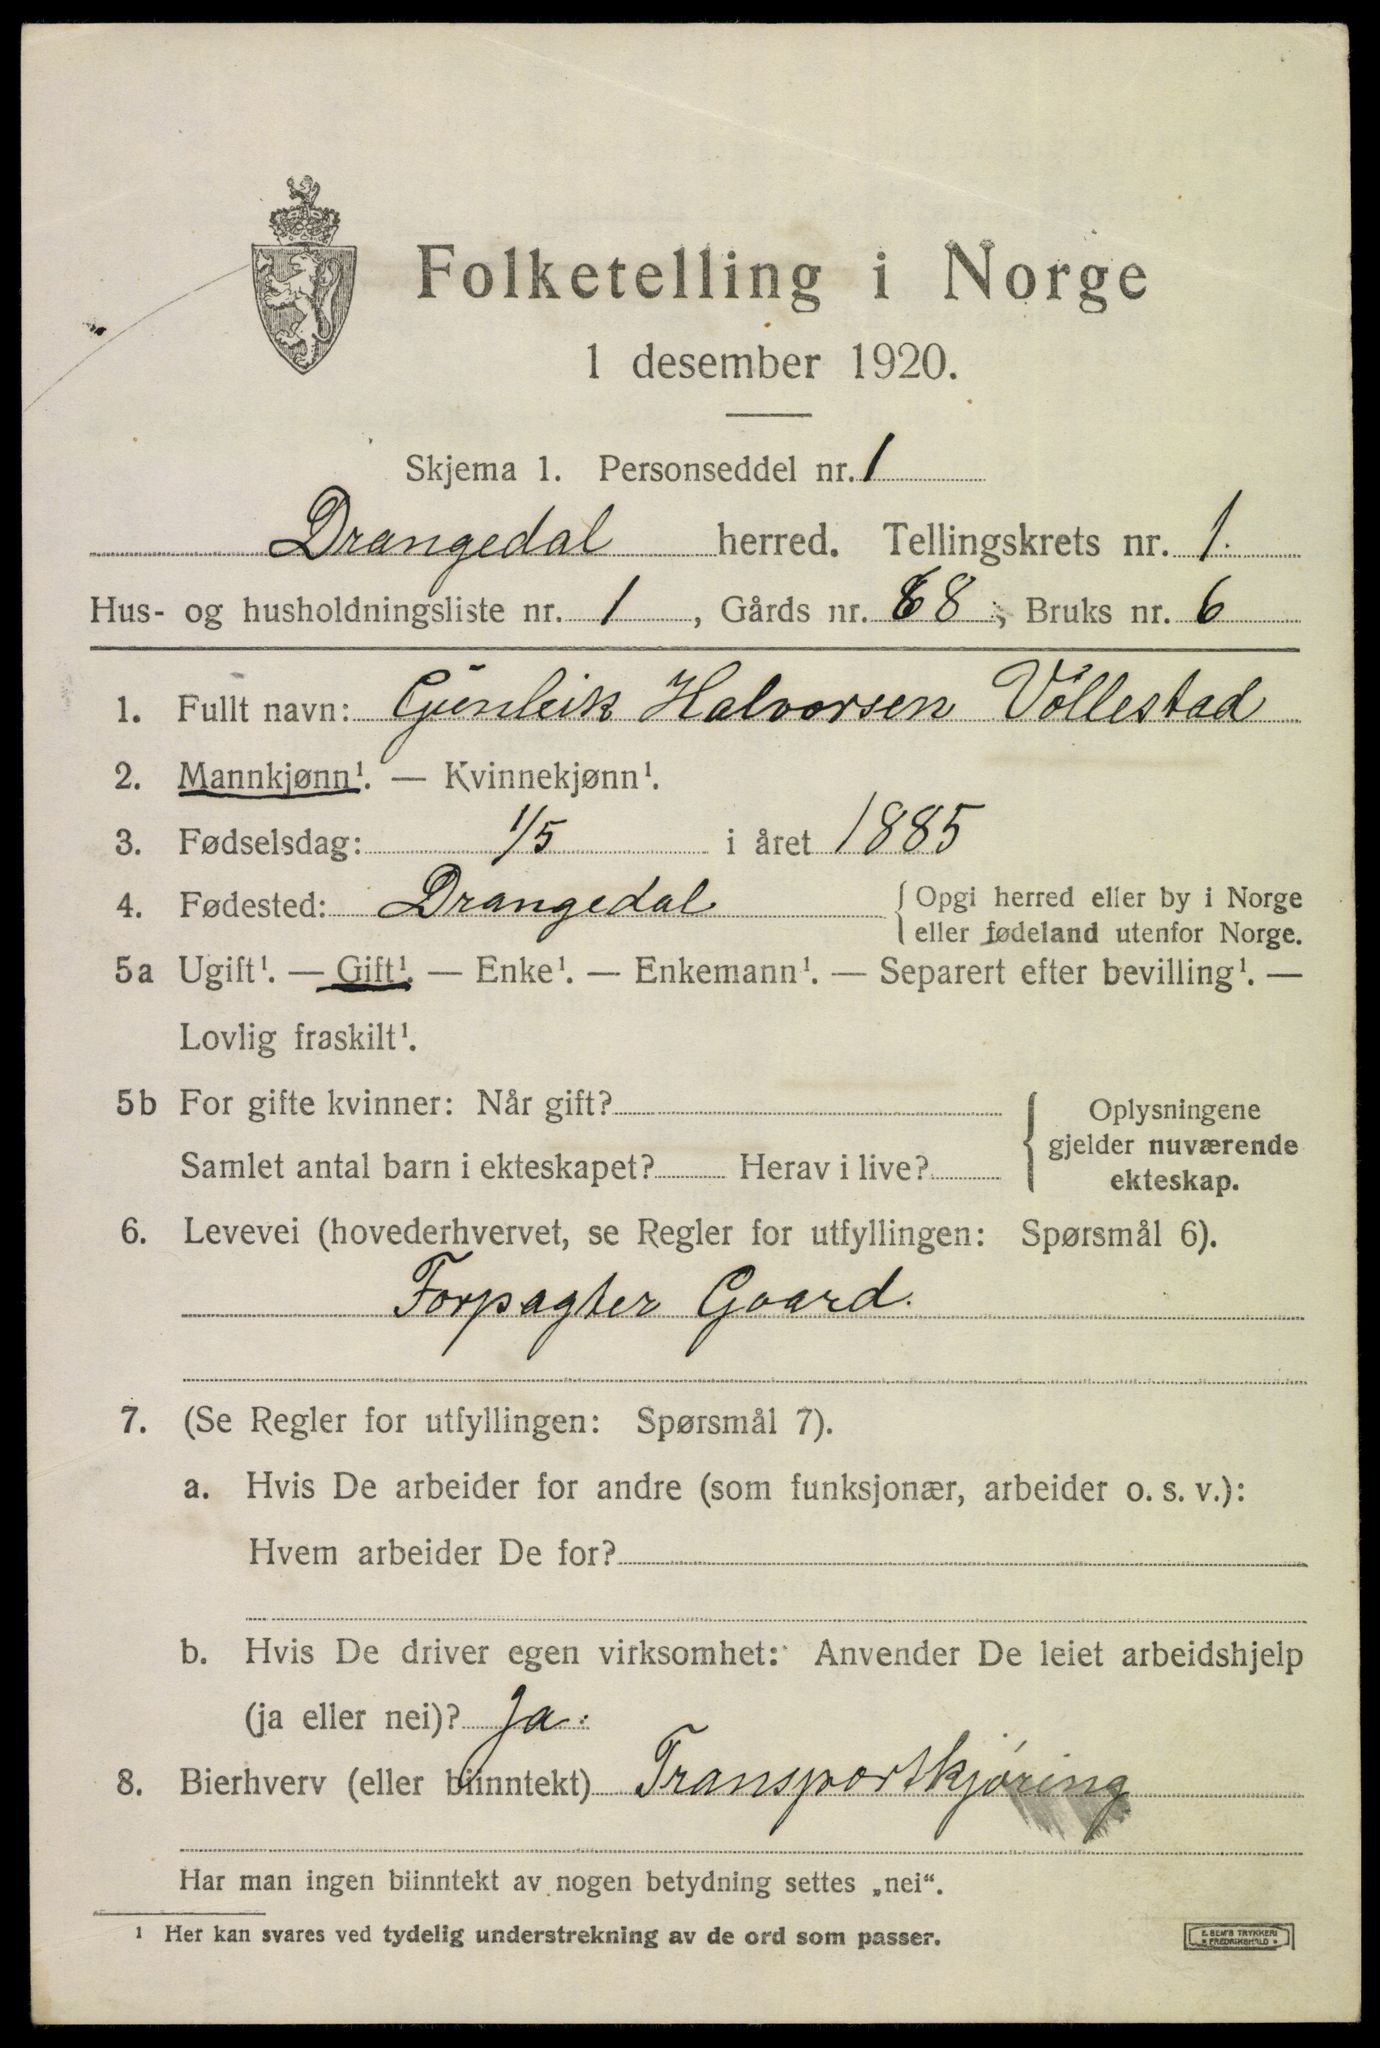 Folketelling i Norge
1 desember 1920.
Skjema 1. Personseddel nr. 1
Drangedal herred. Tellingskrets nr. 1.
Hus- og husholdningsliste nr. 1, Gårds nr. 68, Bruks nr. 6
1. Fullt navn: Gunleik Halvorsen Vøllestad
2. Mannkjønn¹. — Kvinnekjønn¹.
3. Fødselsdag: 1/5 i året 1885
4. Fødested: Drangedal { Opgi herred eller by i Norge
eller fødeland utenfor Norge.
5a Ugift¹. — Gift¹. — Enke¹. — Enkemann¹. — Separert efter bevilling¹. —
Lovlig fraskilt¹.
5b For gifte kvinner: Når gift? { Oplysningene
gjelder nuværende
Samlet antal barn i ekteskapet? Herav i live? ekteskap.
6. Levevei (hovederhvervet, se Regler for utfyllingen: Spørsmål 6).
Forpagter Gaard.
7. (Se Regler for utfyllingen: Spørsmål 7).
a. Hvis De arbeider for andre (som funksjonær, arbeider o. s. v.):
Hvem arbeider De for?
b. Hvis De driver egen virksomhet: Anvender De leiet arbeidshjelp
(ja eller nei)? Ja.
8. Bierhverv (eller biinntekt) Transportkjøring
Har man ingen biinntekt av nogen betydning settes „nei“.
¹ Her kan svares ved tydelig understrekning av de ord som passer.
E. SEM'S TRYKKERI
FREDRIKSHALD